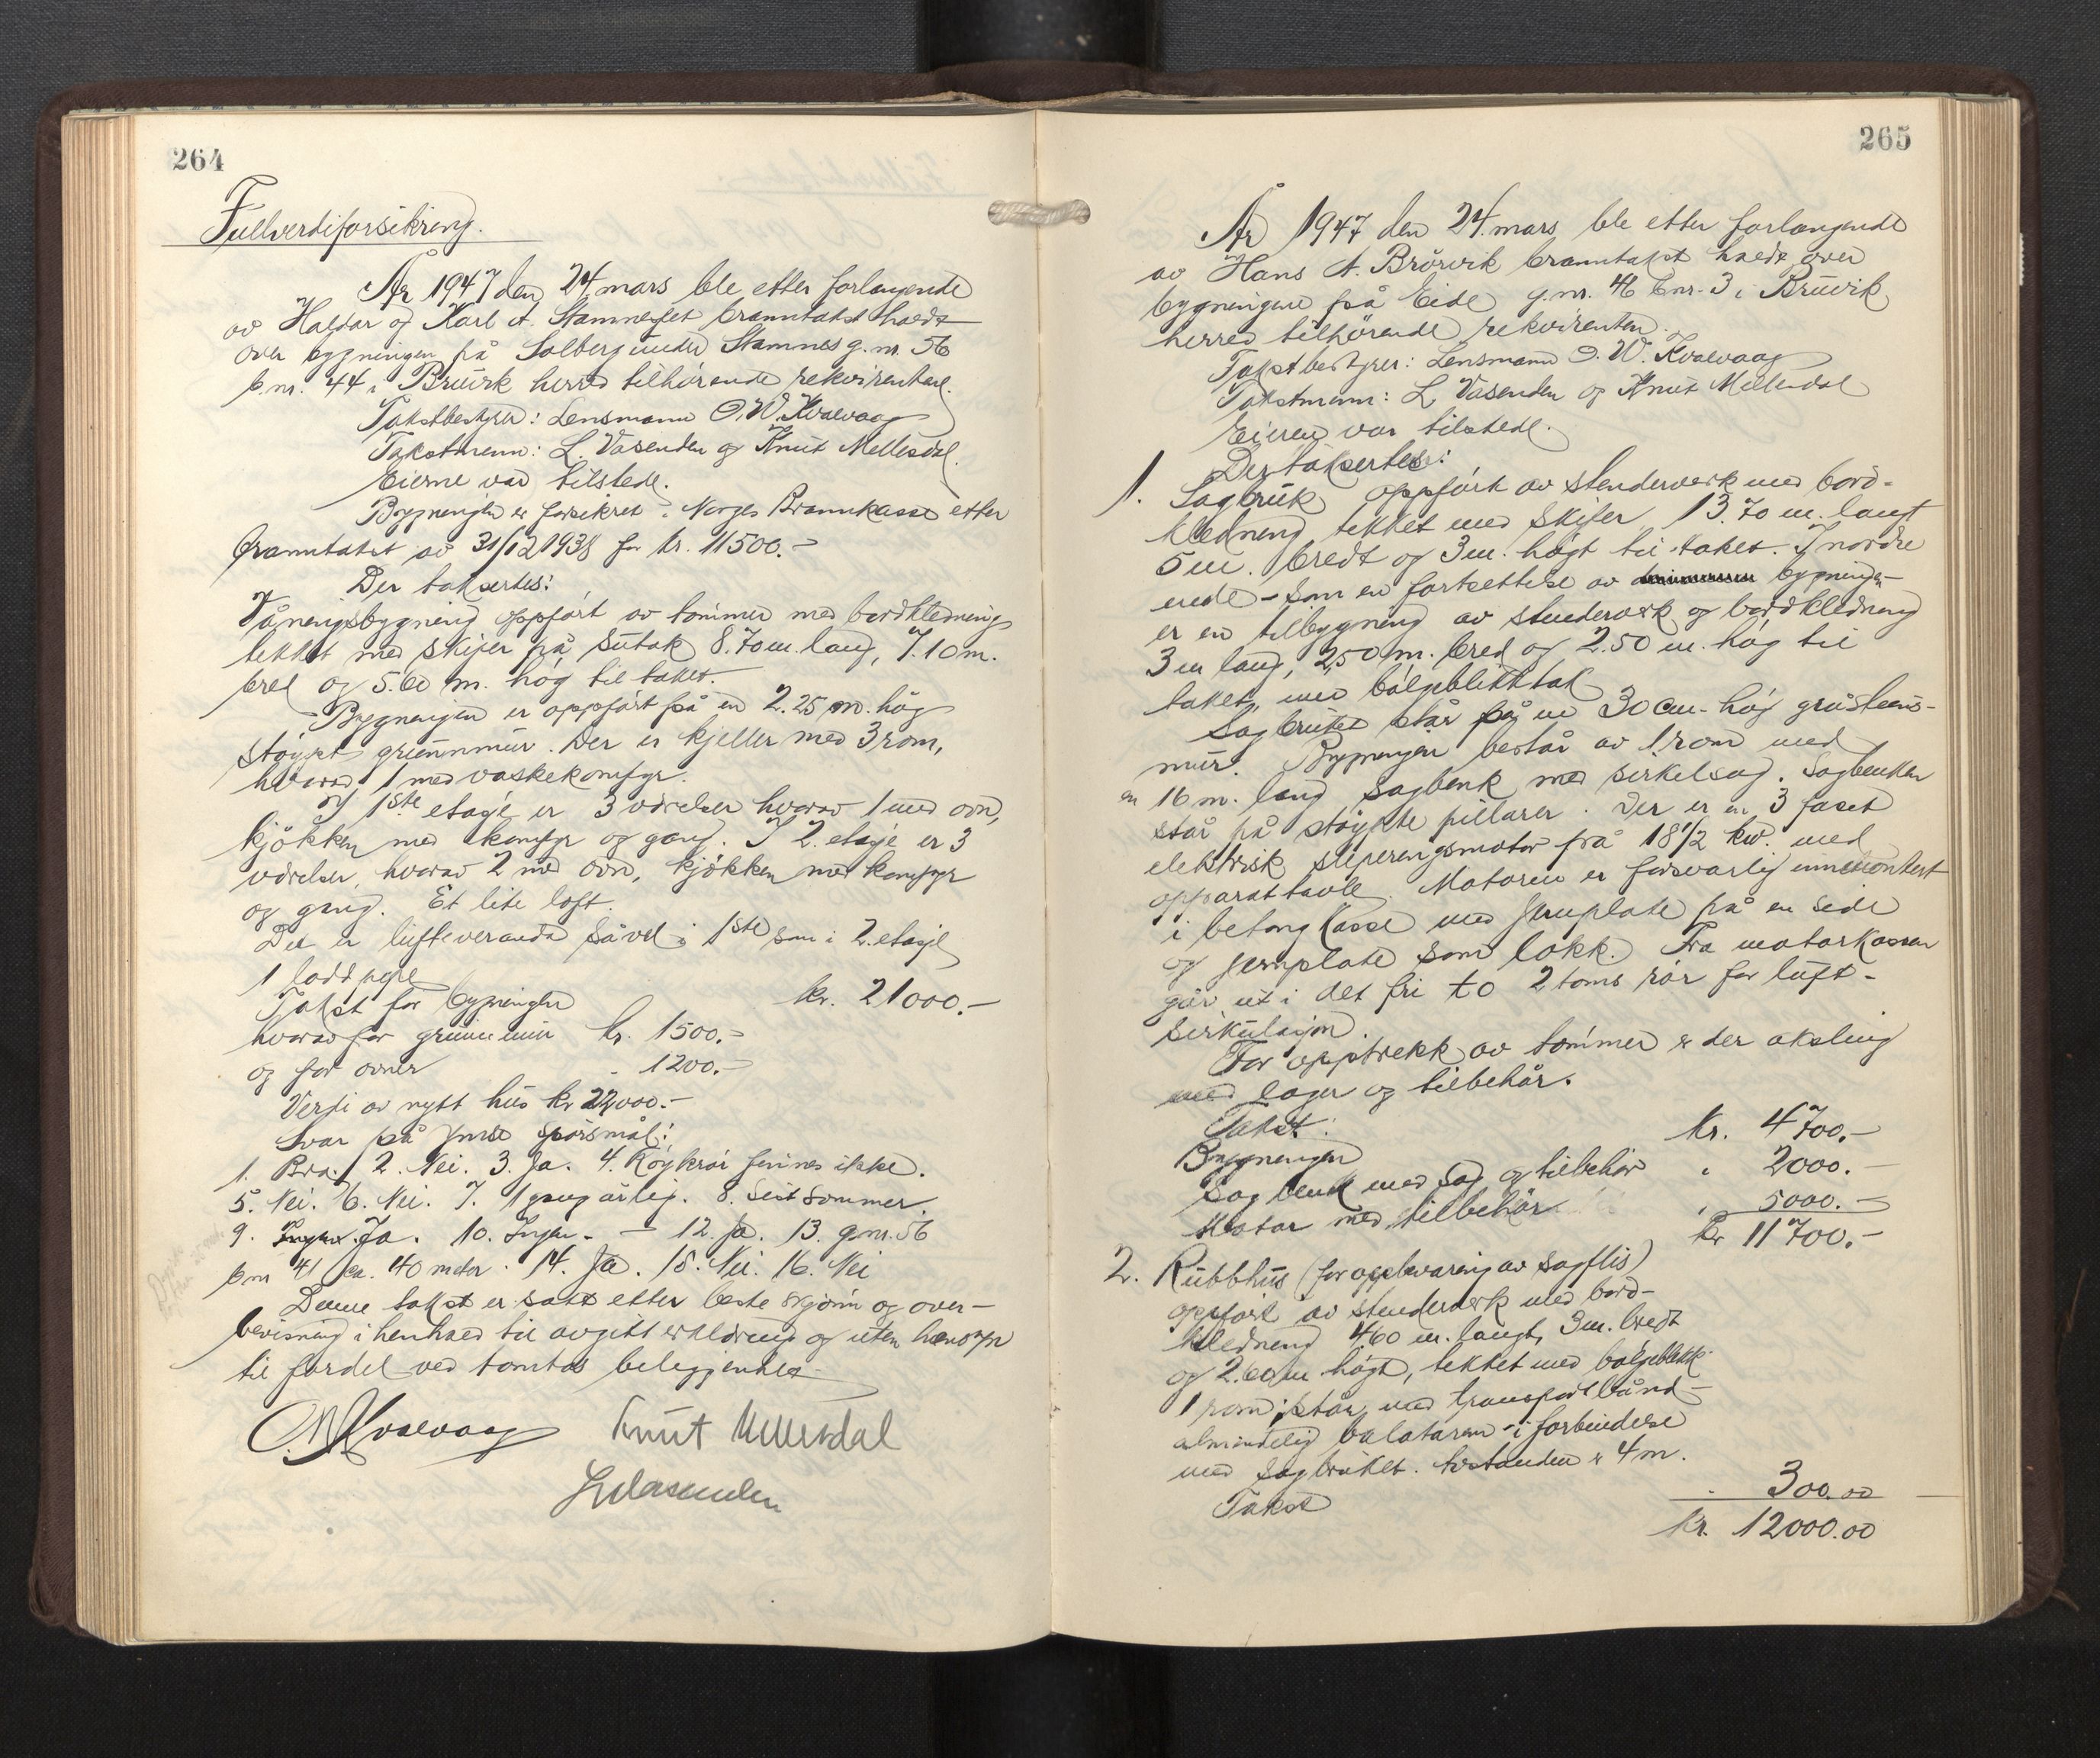 264
Fullverdiforsikring.
År 1947 den 24 mars ble etter forlangende
av Haldor og Karl A. Stamneset branntakst holdt
over bygningen på Solberg under Stamnes g.nr. 56
b.nr. 44 i Bruvik herred tilhørende rekvirentene.
Takstbestyrer: Lensmann O.W. Kvalvaag
Takstmenn: L. Vasenden og Knut Mellesdal.
Eierne var tilstede.
Bygningen er forsikret i Norges Brannkasse etter
branntakst av 31/12 1938 for kr. 11500.-
Der takseres:
Våningsbygning oppført av tømmer med bordkledning
tekket med skifer på sutak 8.70 m. lang, 7.10 m.
bred og 5.60 m. høg til taket.
Bygningen er oppført på en 2.25 m. høg
støypt grunnmur. Der er kjeller med 3 rom,
hvorav 1 med vaskekomfyr.
I 1ste etasje er 3 værelser hvorav 1 med ovn,
kjøkken med komfyr og gang. I 2. etasje er 3
værelser, hvorav 2 med ovn, kjøkken med komfyr
og gang. Et lite loft.
Det er lufteveranda såvel i 1ste som i 2. etasje
1 loddpipe
Takst for bygningen kr. 21000.-
hvorav for grunnmur kr. 1500.-
og for ovner - 1200.-
Verdi av nytt hus kr 22000.-
Svar på ymse spørsmål:
1. Bra. 2. Nei. 3. Ja. 4. Røykrør finnes ikke.
5. Nei. 6. Nei. 7. 1 gang årlig. 8. Sist sommer.
9. Ingen. Ja. 10. Ingen. - 12. Ja. 13. g.nr. 56
bnr 41 ca. 40 meter. 14. Ja. 15. Nei. 16. Nei
Denne takst er satt etter beste skjønn og over-
bevisning i henhold til avgitt erklæring og uten hensyn
til fordel ved tomtas beliggenhet.
O.W. Kvalvaag Knut Mellesdal
L. Vasenden
265
År 1947 den 24. mars ble etter forlangende
av Hans A. Brørvik branntakst holdt over
bygningene på Eide g.nr. 46 b.nr. 3 i Bruvik
herred tilhørende rekvirenten.
Takstbestyrer: Lensmann O.W. Kvalvaag
Takstmenn: L. Vasenden og Knut Mellesdal
Eieren var tilstede.
Der takseres:
1. Sagbruk oppført av stenderverk med bord-
kledning tekket med skifer, 13.70 m. langt
5 m. bredt og 3 m. høgt til taket. I nordre
ende - som en fortsettelse av bygningen -
er en tilbygning av stenderverk og bordkledning
3 m lang, 2,50 m. bred og 2.50 m. høg til
taket, med bølgeblikktak
Sagbruket står på en 30 cm. høg gråsteins-
mur. Bygningen består av 1 rom med
en 16 m. lang sagbenk med sirkelsag. Sagbenken
står på støypte pillarer. Der er en 3 faset
elektrisk sleperingsmotor på 18 1/2 kw. med
apparattavle. Motoren er forsvarlig innmontert
i betongkasse med jernplate på en side
og jernplate som lokk. Fra motorkassen
går ut i det fri to 2 toms rør for luft-
sirkulasjon.
For opptrekk av tømmer er der aksling
med lager og tilbehør.
Takst:
Bygningen kr. 4700.-
Sagbenk med sag og tilbehør " 2000.-
Motor med tilbehør " 5000.-
kr 11700.-
2. Rubbhus (for oppbevaring av sagflis)
oppført av stenderverk med bord-
kledning 4.60 m. langt, 3 m. bredt
og 2.60 m høgt, tekket med bølgeblekk.
1 rom; står med transportbånd -
almindelig balatarem - i forbindelse
med sagbruket. Avstanden er 4 m.
Takst - 300.00
kr. 12000.00